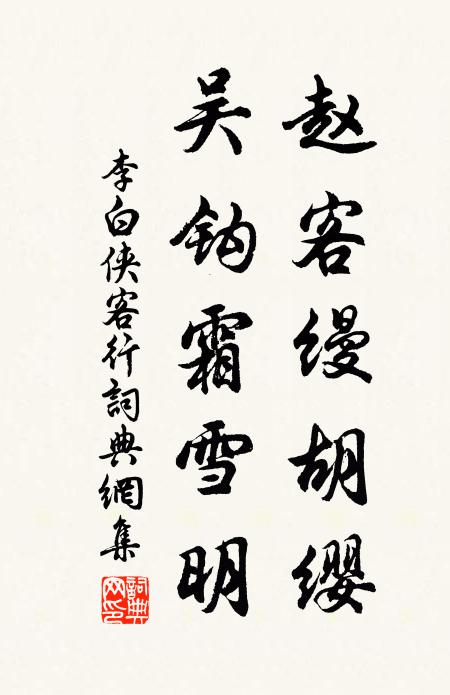 赵客缦胡缨
吴钩霜雪明
李白侠客行詞典網集
詞典
网印